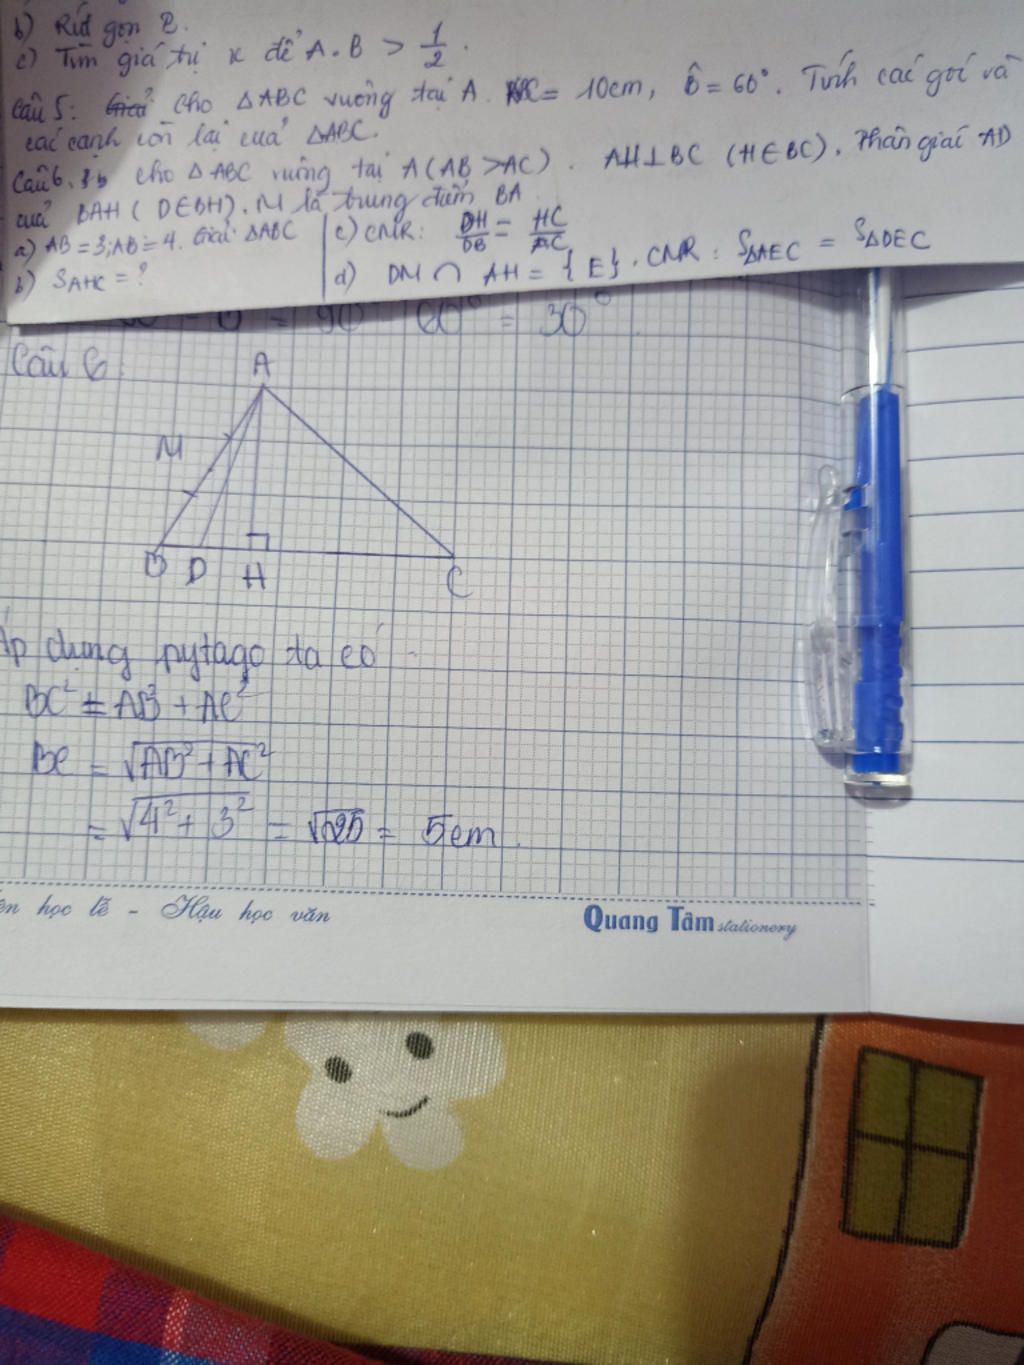 b) Rút gọn B.
c) Tìm giá trị x để A.B > 1/2.
Câu 5: Cho △ABC vuông tại A. BC = 10cm, B̂ = 60°. Tính các góc và
các cạnh còn lại của △ABC.
Câu 6. cho △ABC vuông tại A (AB > AC). AH⊥BC (H∈BC). Phân giác AD
của BAH (D∈BH). M là trung điểm BA
a) AB = 3; AB = 4. Giải △ABC
b) S_AHC = ?
c) CMR: DH/DB = HC/AC
d) DM ∩ AH = {E}. CMR: S△AEC = S△DEC
= 90° - 60° = 30°
Câu 6
A
M
B D H C
Áp dụng pytago ta có
BC² = AB² + AC²
BC = √AB² + AC²
= √4² + 3² = √25 = 5cm.
học lễ - Hậu học văn
Quang Tâm stationery